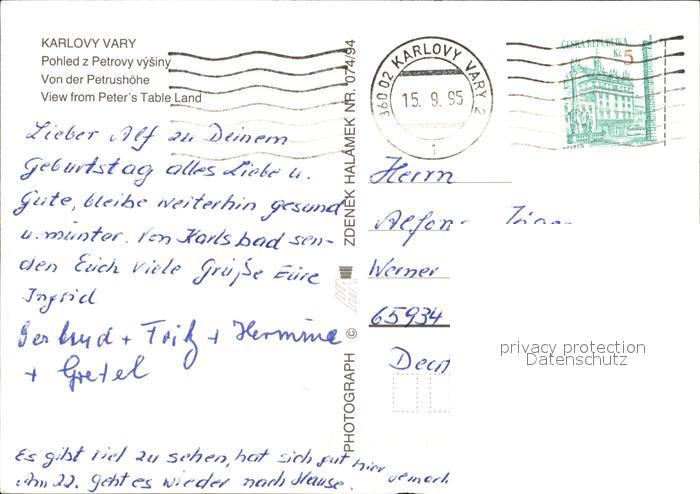 KARLOVY VARY
Pohled z Petrovy výšiny
Von der Petrushöhe
View from Peter's Table Land
Lieber Alf zu Deinem
Geburtstag alles Liebe u.
Gute, bleibe weiterhin gesund
u. munter. Von Karlsbad sen-
den Euch viele Grüße Eure
Ingrid
Gertrud + Fritz + Hermine
+ Gretel
Es gibt viel zu sehen, hat sich gut hier gemach
Am 22. geht es wieder nach Hause.
PHOTOGRAPH © ZDENEK HALÁMEK NR. 074/94
360 02 KARLOVY VARY 2
15. 9. 95
1
ČESKÁ REPUBLIKA
Kč 5
Herrn
Alfons
Werner
65934
Deut
privacy protection
Datenschutz